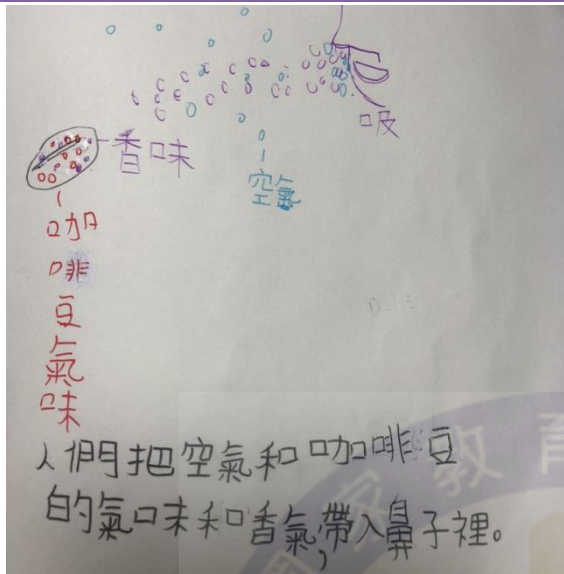 吸
香味
空氣
咖啡豆氣味
人們把空氣和咖啡豆
的氣味和香氣,帶入鼻子裡。
家教育